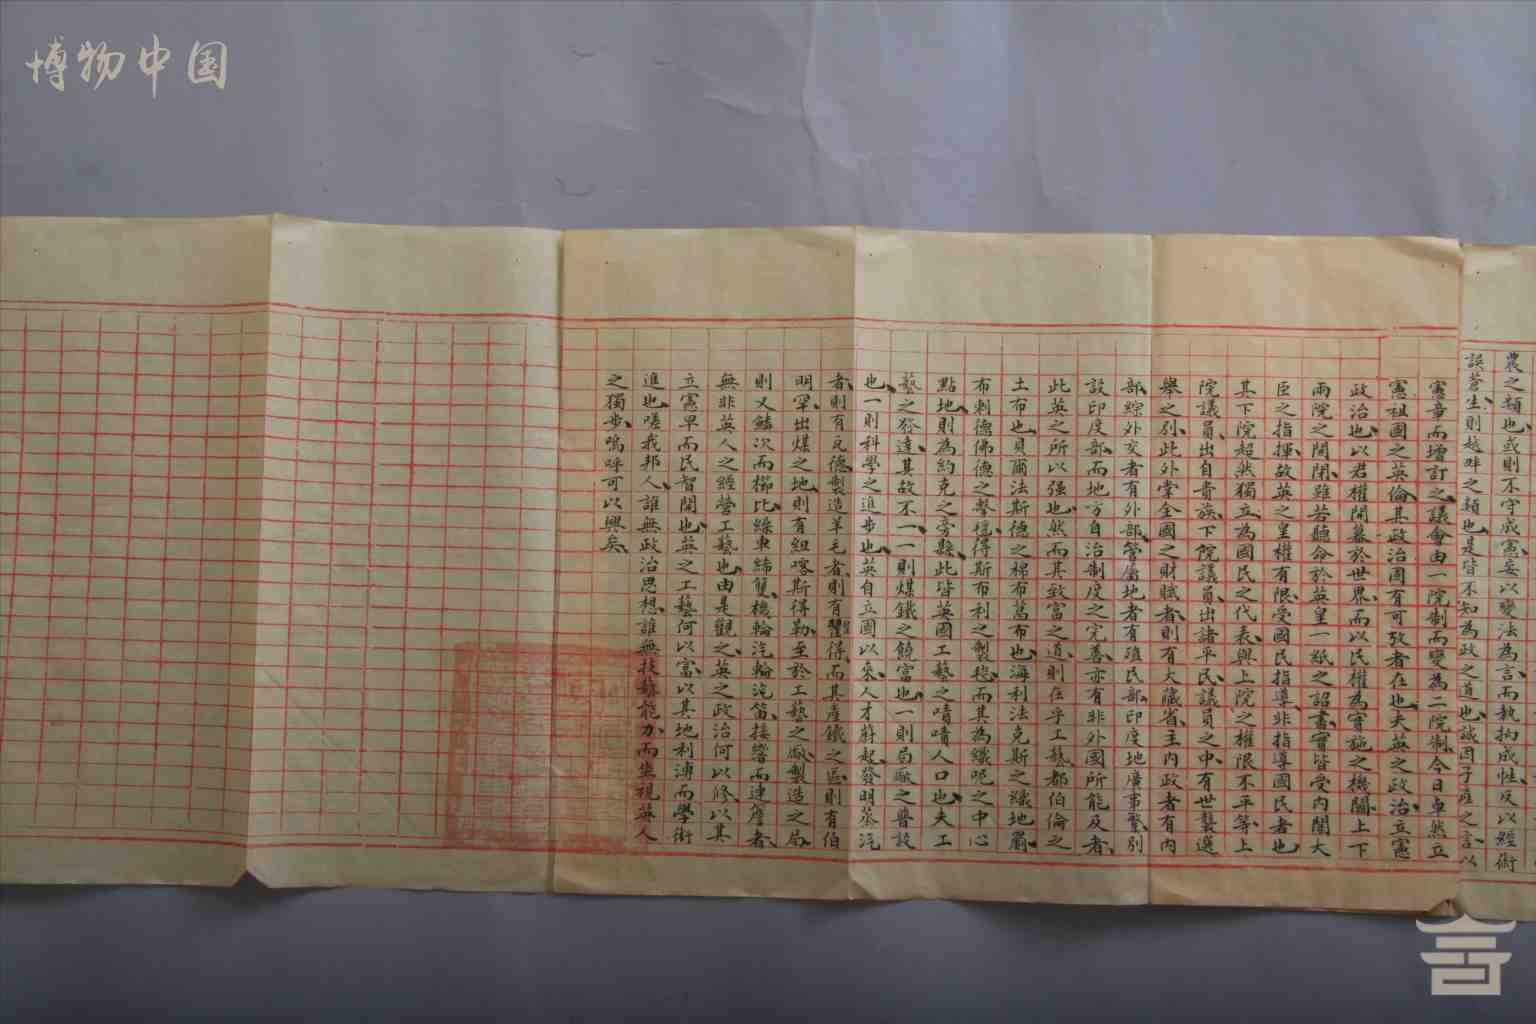 博物中国
農之類也或則不守成憲妄以變法為言而執拗成性反以經術
誤蒼生則越畔之類也是皆不知為政之道也誠因子產之言以
憲章而增訂之議會由一院制而變為二院制今日卓然立
憲祖國之英倫其政治固有可攷者在也夫英之政治立憲
政治也以君權開幕於世界而以民權為實施之機關上下
兩院之開閉雖若聽命於英皇一紙之詔書實皆受內閣大
臣之指揮故英之皇權有限受國民指導非指導國民者也
其下院超然獨立為國民之代表與上院之權限不平等上
院議員出自貴族下院議員出諸平民議員之中有世襲選
舉之列此外掌全國之財賦者則有大藏省主內政者有內
部綜外交者有外部管屬地者有殖民部印度地廣事繁別
設印度部而地方自治制度之完善亦有非外國所能及者
此英之所以强也然而其致富之道則在乎工藝都伯倫之
土布也貝爾法斯德之棉布葛布也海利法克斯之氊地罽
布刺德佛德之驁毯得斯布利之製毯而其為織呢之中心
點地則為約克之旁縣此皆英國工藝之嘖嘖人口也夫工
藝之發達其故不一一則煤鐵之饒富也一則局廠之普設
也一則科學之進步也英自立國以來人才蔚起發明蒸汽
者則有瓦德製造羊毛者則有瞿得而其產鐵之區則有伯
明罕出煤之地則有組喀斯得勒至於工藝之廠製造之局
則又鱗次而櫛比繅車締雙機輪汽輪汽笛接響而連塵者
無非英人之經營工藝也由是觀之英之政治何以修以其
立憲早而民智開也英之工藝何以富以其地利溥而學術
進也嗟我邦人誰無政治思想誰無技藝能力而坐視英人
之獨步嗚呼可以興矣